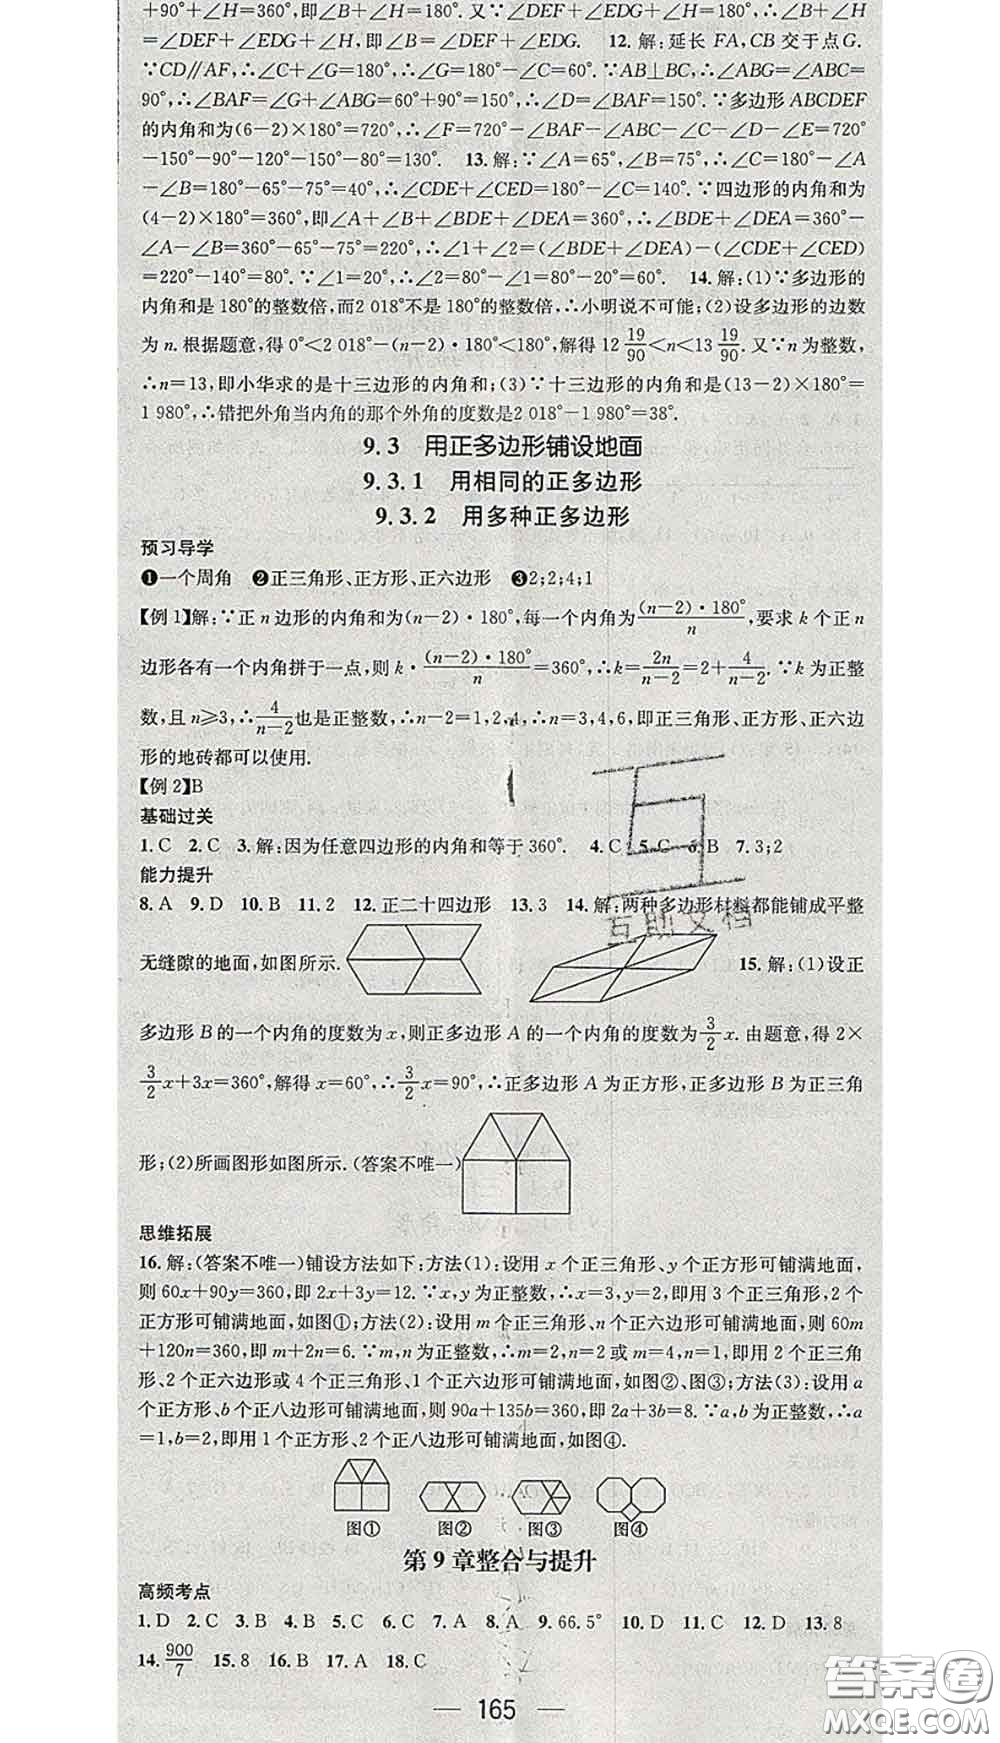 +90°+∠H=360°,即∠B+∠H=180°. 又∵∠DEF+∠EDG+∠FDE=180°,∴∠B+∠H
=∠DEF+∠EDG+∠H,即∠B=∠DEF+∠EDG. 12. 解:延长 FA,CB 交于点G.
∵CD∥AF,∴∠C+∠G=180°,∴∠G=180°-∠C=60°. ∵AB⊥BC,∴∠ABG=∠ABC=
90°,∴∠BAF=∠G+∠ABG=60°+90°=150°,∴∠D=∠BAF=150°. ∵多边形 ABCDEF
的内角和为(6-2)×180°=720°,∴∠F=720°-∠BAF-∠ABC-∠C-∠D-∠E=720°
-150°-90°-120°-150°-80°=130°. 13. 解:∵∠A=65°,∠B=75°,∴∠C=180°-∠A
-∠B=180°-65°-75°=40°,∴∠CDE+∠CED=180°-∠C=140°. ∵四边形的内角和为
(4-2)×180°=360°,即∠A+∠B+∠BDE+∠DEA=360°,∴∠BDE+∠DEA=360°-
∠A-∠B=360°-65°-75°=220°,∴∠1+∠2=(∠BDE+∠DEA)-(∠CDE+∠CED)
=220°-140°=80°. ∵∠1=20°,∴∠2=80°-∠1=80°-20°=60°. 14. 解:(1)∵多边形的
内角和是 180°的整数倍,而2 018°不是 180°的整数倍,∴小明说不可能;(2)设多边形的边数
为 n. 根据题意,得 0°<2 018°-(n-2)·180°<180°,解得 12 19/90<n<13 19/90. 又∵n 为整数,
∴n=13,即小华求的是十三边形的内角和;(3)∵十三边形的内角和是(13-2)×180°=
1 980°,∴错把外角当内角的那个外角的度数是2 018°-1 980°=38°.
9.3 用正多边形铺设地面
9.3.1 用相同的正多边形
9.3.2 用多种正多边形
预习导学
❶一个周角 ❷正三角形、正方形、正六边形 ❸2;2;4;1
【例 1】解:∵正 n 边形的内角和为(n-2)·180°,每一个内角为(n-2)·180°/n,要求 k 个正n
边形各有一个内角拼于一点,则 k·(n-2)·180°/n=360°,∴k=2n/(n-2)=2+4/(n-2). ∵k 为正整
数,且 n⩾3,∴4/(n-2)也是正整数,∴n-2=1,2,4,∴n=3,4,6,即正三角形、正方形、正六边
形的地砖都可以使用.
【例 2】B
基础过关
1. C 2. C 3. 解:因为任意四边形的内角和等于 360°. 4. C 5. C 6. B 7. 3;2
能力提升
8. A 9. D 10. B 11. 2 12. 正二十四边形 13. 3 14. 解:两种多边形材料都能铺成平整
无缝隙的地面,如图所示. 15. 解:(1)设正
多边形 B 的一个内角的度数为 x,则正多边形 A 的一个内角的度数为3/2x. 由题意,得 2×
3/2x+3x=360°,解得 x=60°,∴3/2x=90°,∴正多边形 A 为正方形,正多边形 B 为正三角
形;(2)所画图形如图所示.(答案不唯一)
思维拓展
16. 解:(答案不唯一)铺设方法如下:方法(1):设用 x 个正三角形、y 个正方形可铺满地面,
则 60x+90y=360,即 2x+3y=12. ∵x,y 为正整数,∴x=3,y=2,即用 3 个正三角形,2 个
正方形可铺满地面,如图①;方法(2):设用 m 个正三角形、n 个正六边形可铺满地面,则 60m
+120n=360,即 m+2n=6. ∵m,n 为正整数,∴m=2,n=2 或 m=4,n=1,即用 2 个正三角
形、2 个正六边形或 4 个正三角形、1 个正六边形可铺满地面,如图②、图③;方法(3):设用 a
个正方形、b 个正八边形可铺满地面,则 90a+135b=360,即 2a+3b=8. ∵a,b 为正整数,∴a
=1,b=2,即用 1 个正方形、2 个正八边形可铺满地面,如图④.
图① 图② 图③ 图④
第 9 章整合与提升
高频考点
1. D 2. C 3. B 4. B 5. C 6. C 7. A 8. A 9. 66.5° 10. D 11. C 12. D 13. 8
14. 900/7 15. 8 16. B 17. A 18. C
165
互助文档
答案圈
MXQE.COM